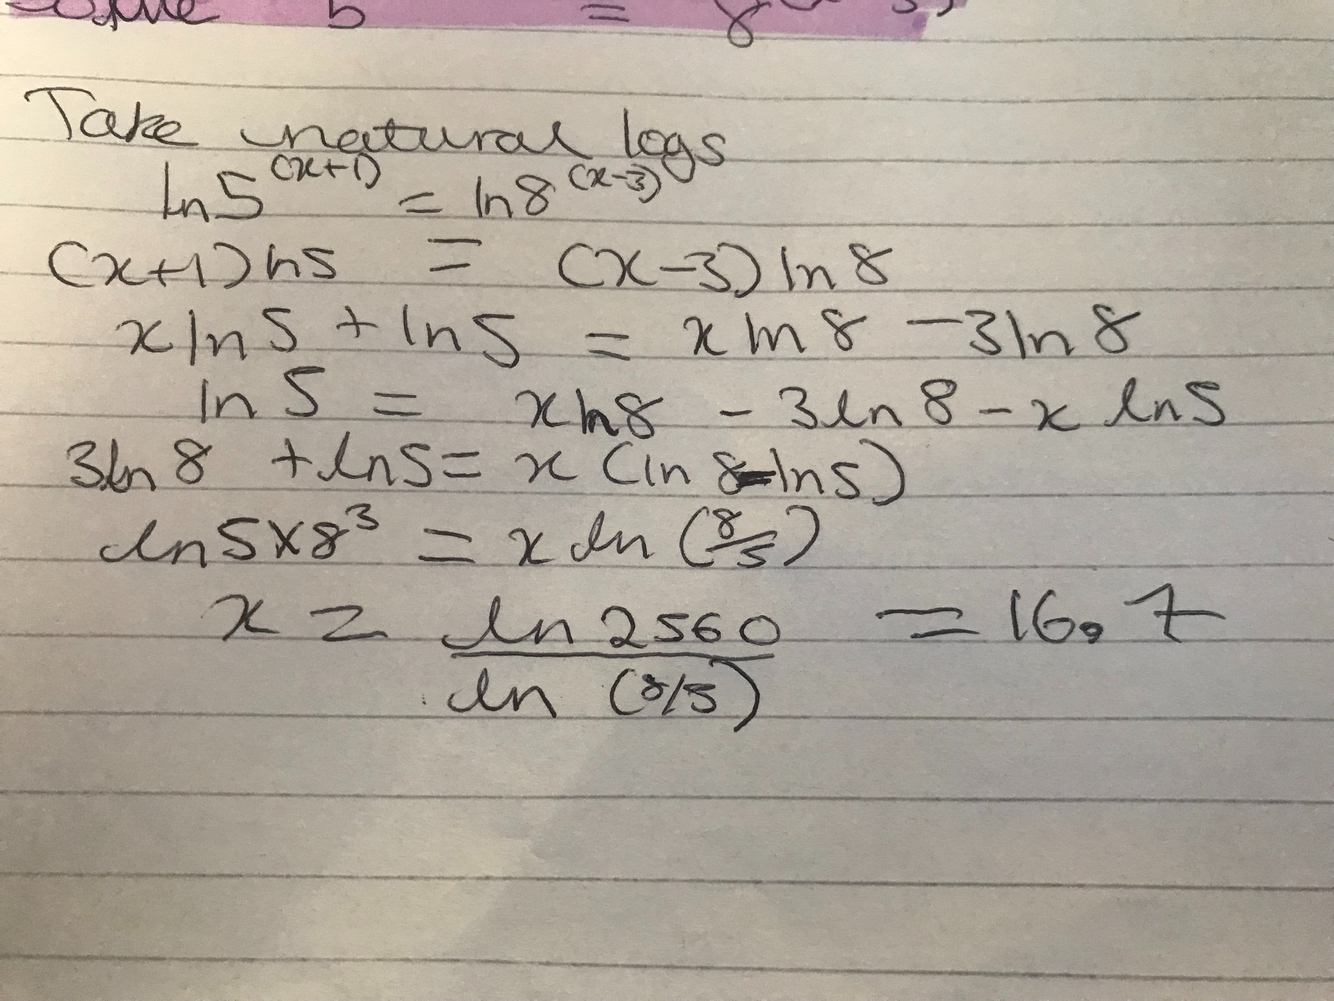 = 8
Take natural logs
ln5^(x+1) = ln8^(x-3)
(x+1)ln5 = (x-3)ln8
xln5 + ln5 = xln8 - 3ln8
ln5 = xln8 - 3ln8 - x ln5
3ln8 + ln5 = x (ln8 - ln5)
ln5×8³ = x ln (8/5)
x = ln 2560 / ln (8/5) = 16.7